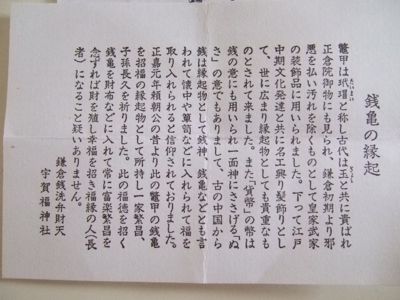 銭亀の縁起
鼈甲は玳瑁と称し古代は玉と共に貴ばれ
正倉院御物にも見られ、鎌倉初期より邪
悪を払い汚れを除くものとして皇家武家
の装飾品に用いられました。下って江戸
中期文化発達と共に名工興り髪飾りとし
て、世に広まり縁起物としても貴重なも
のとされて来ました。また「貨幣」の幣は
銭の意にも用いられ一面神にささげる「ぬ
さ」の意でもありまして、古の中国から
銭は縁起物として銭神、銭亀などとも言
われて懐中や簞笥などに入れられて福を
取り入れられると信仰されておりました。
正嘉元年頼朝公の昔より此の鼈甲の銭亀
を招福の縁起物として所持し一家繁昌、
子孫長久を祈りました。此の福徳を招く
銭亀を財布などに入れて常に富楽繁昌を
念ずれば財を殖し幸福を招き福縁の人(長
者)になること疑いありません。
鎌倉銭洗弁財天
宇賀福神社